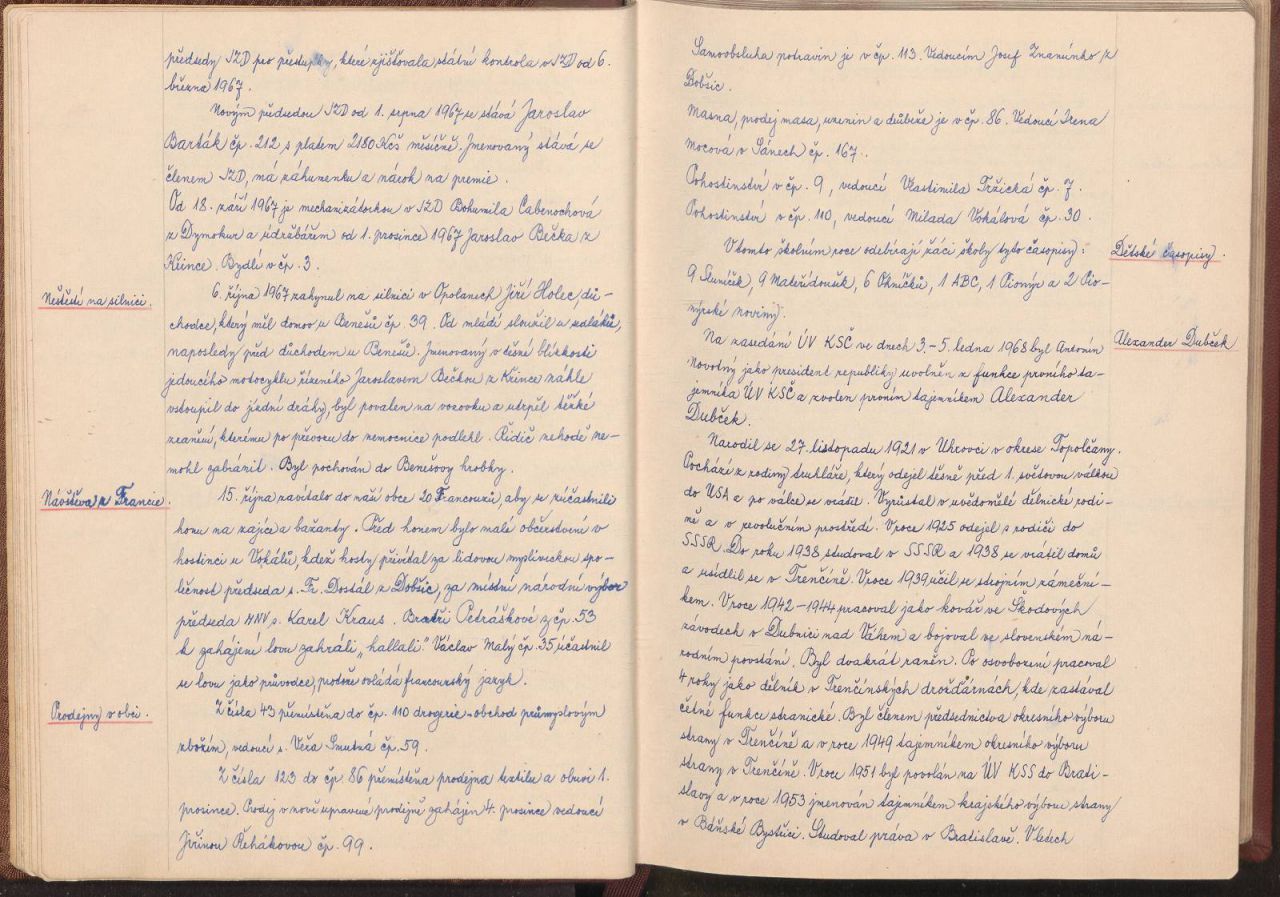 předsedy JZD pro přestupky, které zjišťovala státní kontrola v JZD od 6.
března 1967.
Novým předsedou JZD od 1. srpna 1967 se stává Jaroslav
Barták čp. 212 s platem 2180 Kčs měsíčně. Jmenovaný stává se
členem JZD, má záhumenku a nárok na premie.
Od 18. září 1967 je mechanizátorkou v JZD Bohumila Cabenochová
z Dymokur a údržbářem od 1. prosince 1967 Jaroslav Bečka z
Křince. Bydlí v čp. 3.
Neštěstí na silnici.
6. října 1967 zahynul na silnici v Opolanech Jiří Holec dů-
chodce, který měl domov u Benešů čp. 39. Od mládí sloužil u sedláků,
naposledy před důchodem u Benešů. Jmenovaný v těsné blízkosti
jedoucího motocyklu řízeného Jaroslavem Bečkou z Křince náhle
vstoupil do jízdní dráhy, byl povalen na vozovku a utrpěl těžké
zranění, kterému po převozu do nemocnice podlehl. Řidič nehodě ne-
mohl zabránit. Byl pochován do Benešovy hrobky.
Návštěva z Francie.
15. října zavítalo do naší obce 20 Francouzů, aby se zúčastnili
honu na zajíce a bažanty. Před honem bylo malé občerstvení v
hostinci u Vokálů, kdež hosty přivítal za lidovou mysliveckou spo-
lečnost předseda s. Fr. Dostál z Dobšic, za místní národní výbor
předseda MNV s. Karel Kraus. Bratři Petráškové z čp. 53
k zahájení lovu zahráli „hallali." Václav Malý čp. 35 účastnil
se lovu jako průvodce, protože ovládá francouzský jazyk.
Prodejny v obci.
Z čísla 43 přemístěna do čp. 110 drogerie - obchod průmyslovým
zbožím, vedoucí s. Věra Smutná čp. 59.
Z čísla 123 do čp. 86 přemístěna prodejna textilu a obuvi 1.
prosince. Prodej v nově upravené prodejně zahájen 4. prosince vedoucí
Jiřinou Řehákovou čp. 99.
Samoobsluha potravin je v čp. 113. Vedoucím Josef Znamínko z
Dobšic.
Masna, prodej masa, uzenin a drůbeže je v čp. 86. Vedoucí Irena
Mocová v Sánech čp. 167.
Pohostinství v čp. 9, vedoucí Vlastimila Tržická čp. 7.
Pohostinství v čp. 110, vedoucí Milada Vokálová čp. 30.
Dětské časopisy.
V tomto školním roce odebírají žáci školy tyto časopisy:
9 Sluníček, 9 Mateřídoušk, 6 Ohníčků, 1 ABC, 1 Pionýr a 2 Pio-
nýrské noviny.
Alexander Dubček
Na zasedání ÚV KSČ ve dnech 3.-5. ledna 1968 byl Antonín
Novotný jako president republiky uvolněn z funkce prvního ta-
jemníka ÚV KSČ a zvolen prvním tajemníkem Alexander
Dubček.
Narodil se 27. listopadu 1921 v Uhrovci v okrese Topolčany.
Pochází z rodiny truhláře, který odejel těsně před 1. světovou válkou
do USA a po válce se vrátil. Vyrůstal v uvědomělé dělnické rodi-
ně a v revolučním prostředí. V roce 1925 odejel s rodiči do
SSSR. Do roku 1938 studoval v SSSR a 1938 se vrátil domů
a usídlil se v Trenčíně. V roce 1939 učil se strojním zámeční-
kem. V roce 1942-1944 pracoval jako kovář ve Škodových
závodech v Dubnici nad Váhem a bojoval ve slovenském ná-
rodním povstání. Byl dvakrát raněn. Po osvobození pracoval
4 roky jako dělník v Trenčínských drožďárnách, kde zastával
četné funkce stranické. Byl členem předsednictva okresního výboru
strany v Trenčíně a v roce 1949 tajemníkem okresního výboru
strany v Trenčíně. V roce 1951 byl povolán na ÚV KSS do Brati-
slavy a v roce 1953 jmenován tajemníkem krajského výboru strany
v Báňské Bystřici. Studoval práva v Bratislavě. V letech